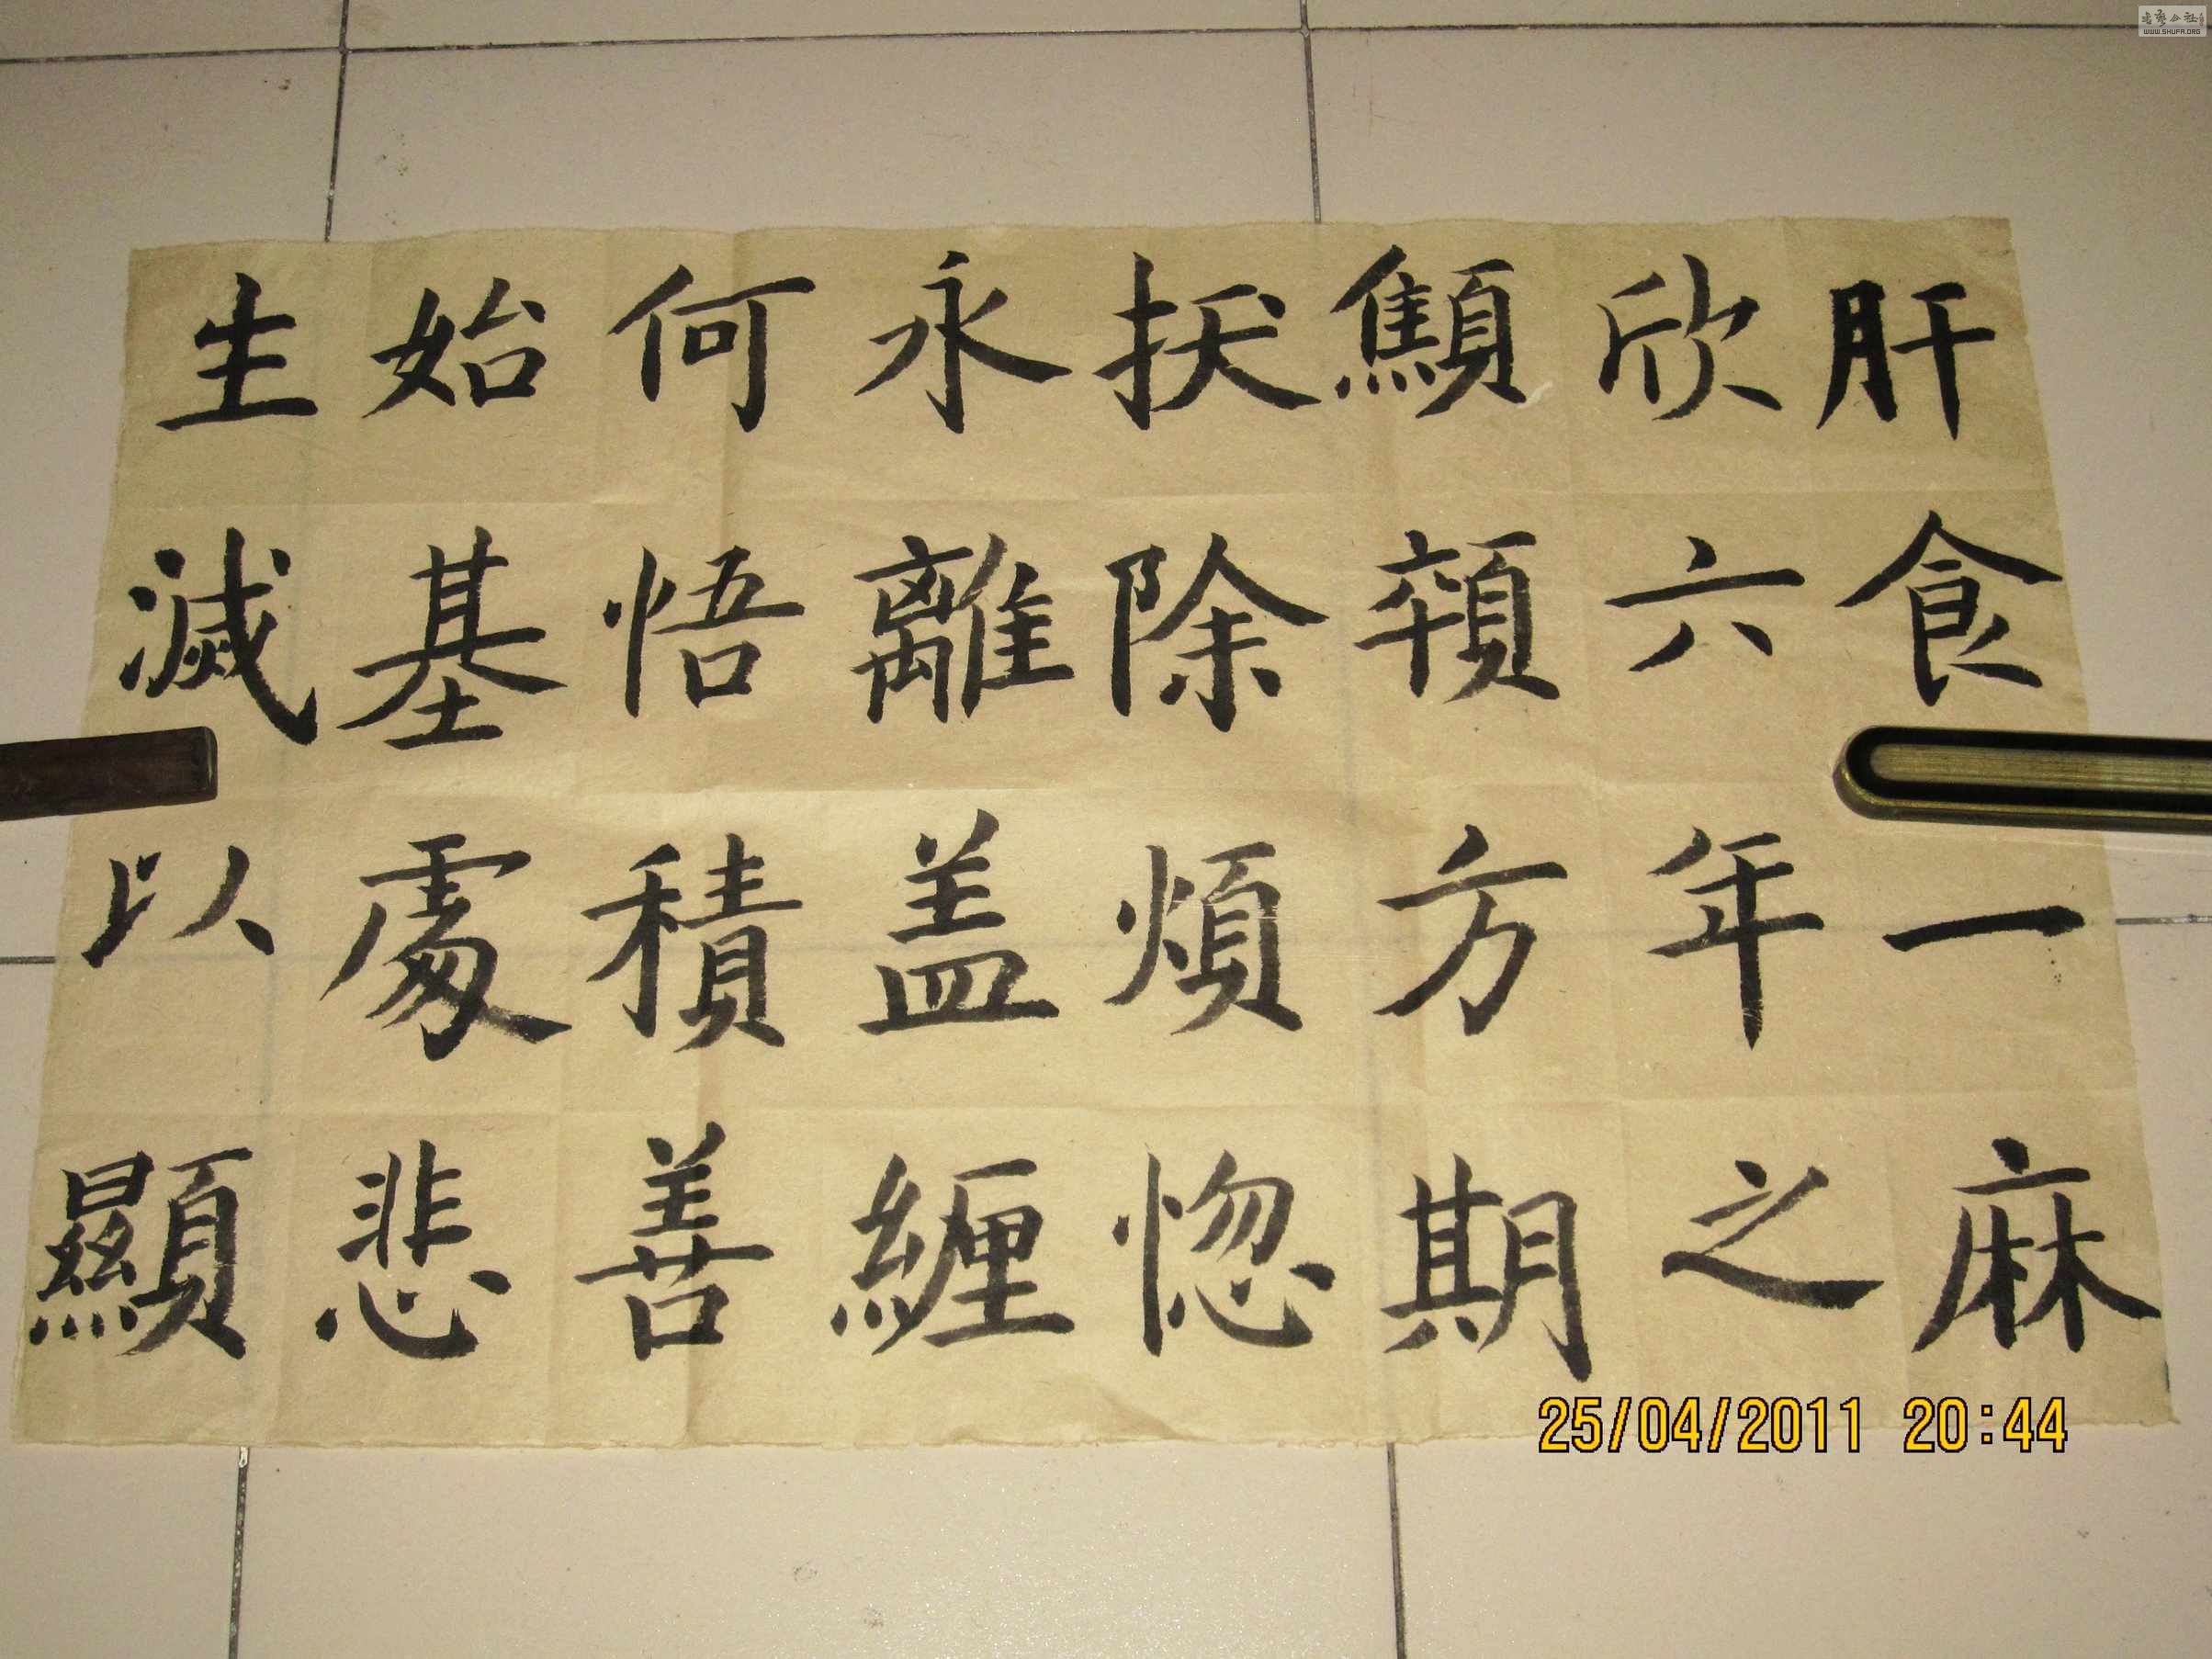 肝食一麻
欣六年之
顦顇方期
拔除煩惚
永離盖緾
何悟積善
始基處悲
生滅以顯
25/04/2011 20:44
WWW.SHUFA.ORG